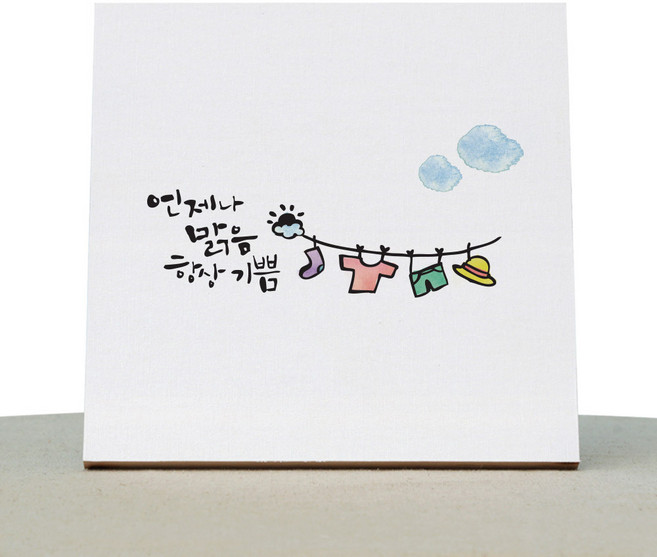 언제나
맑음
항상 기쁨